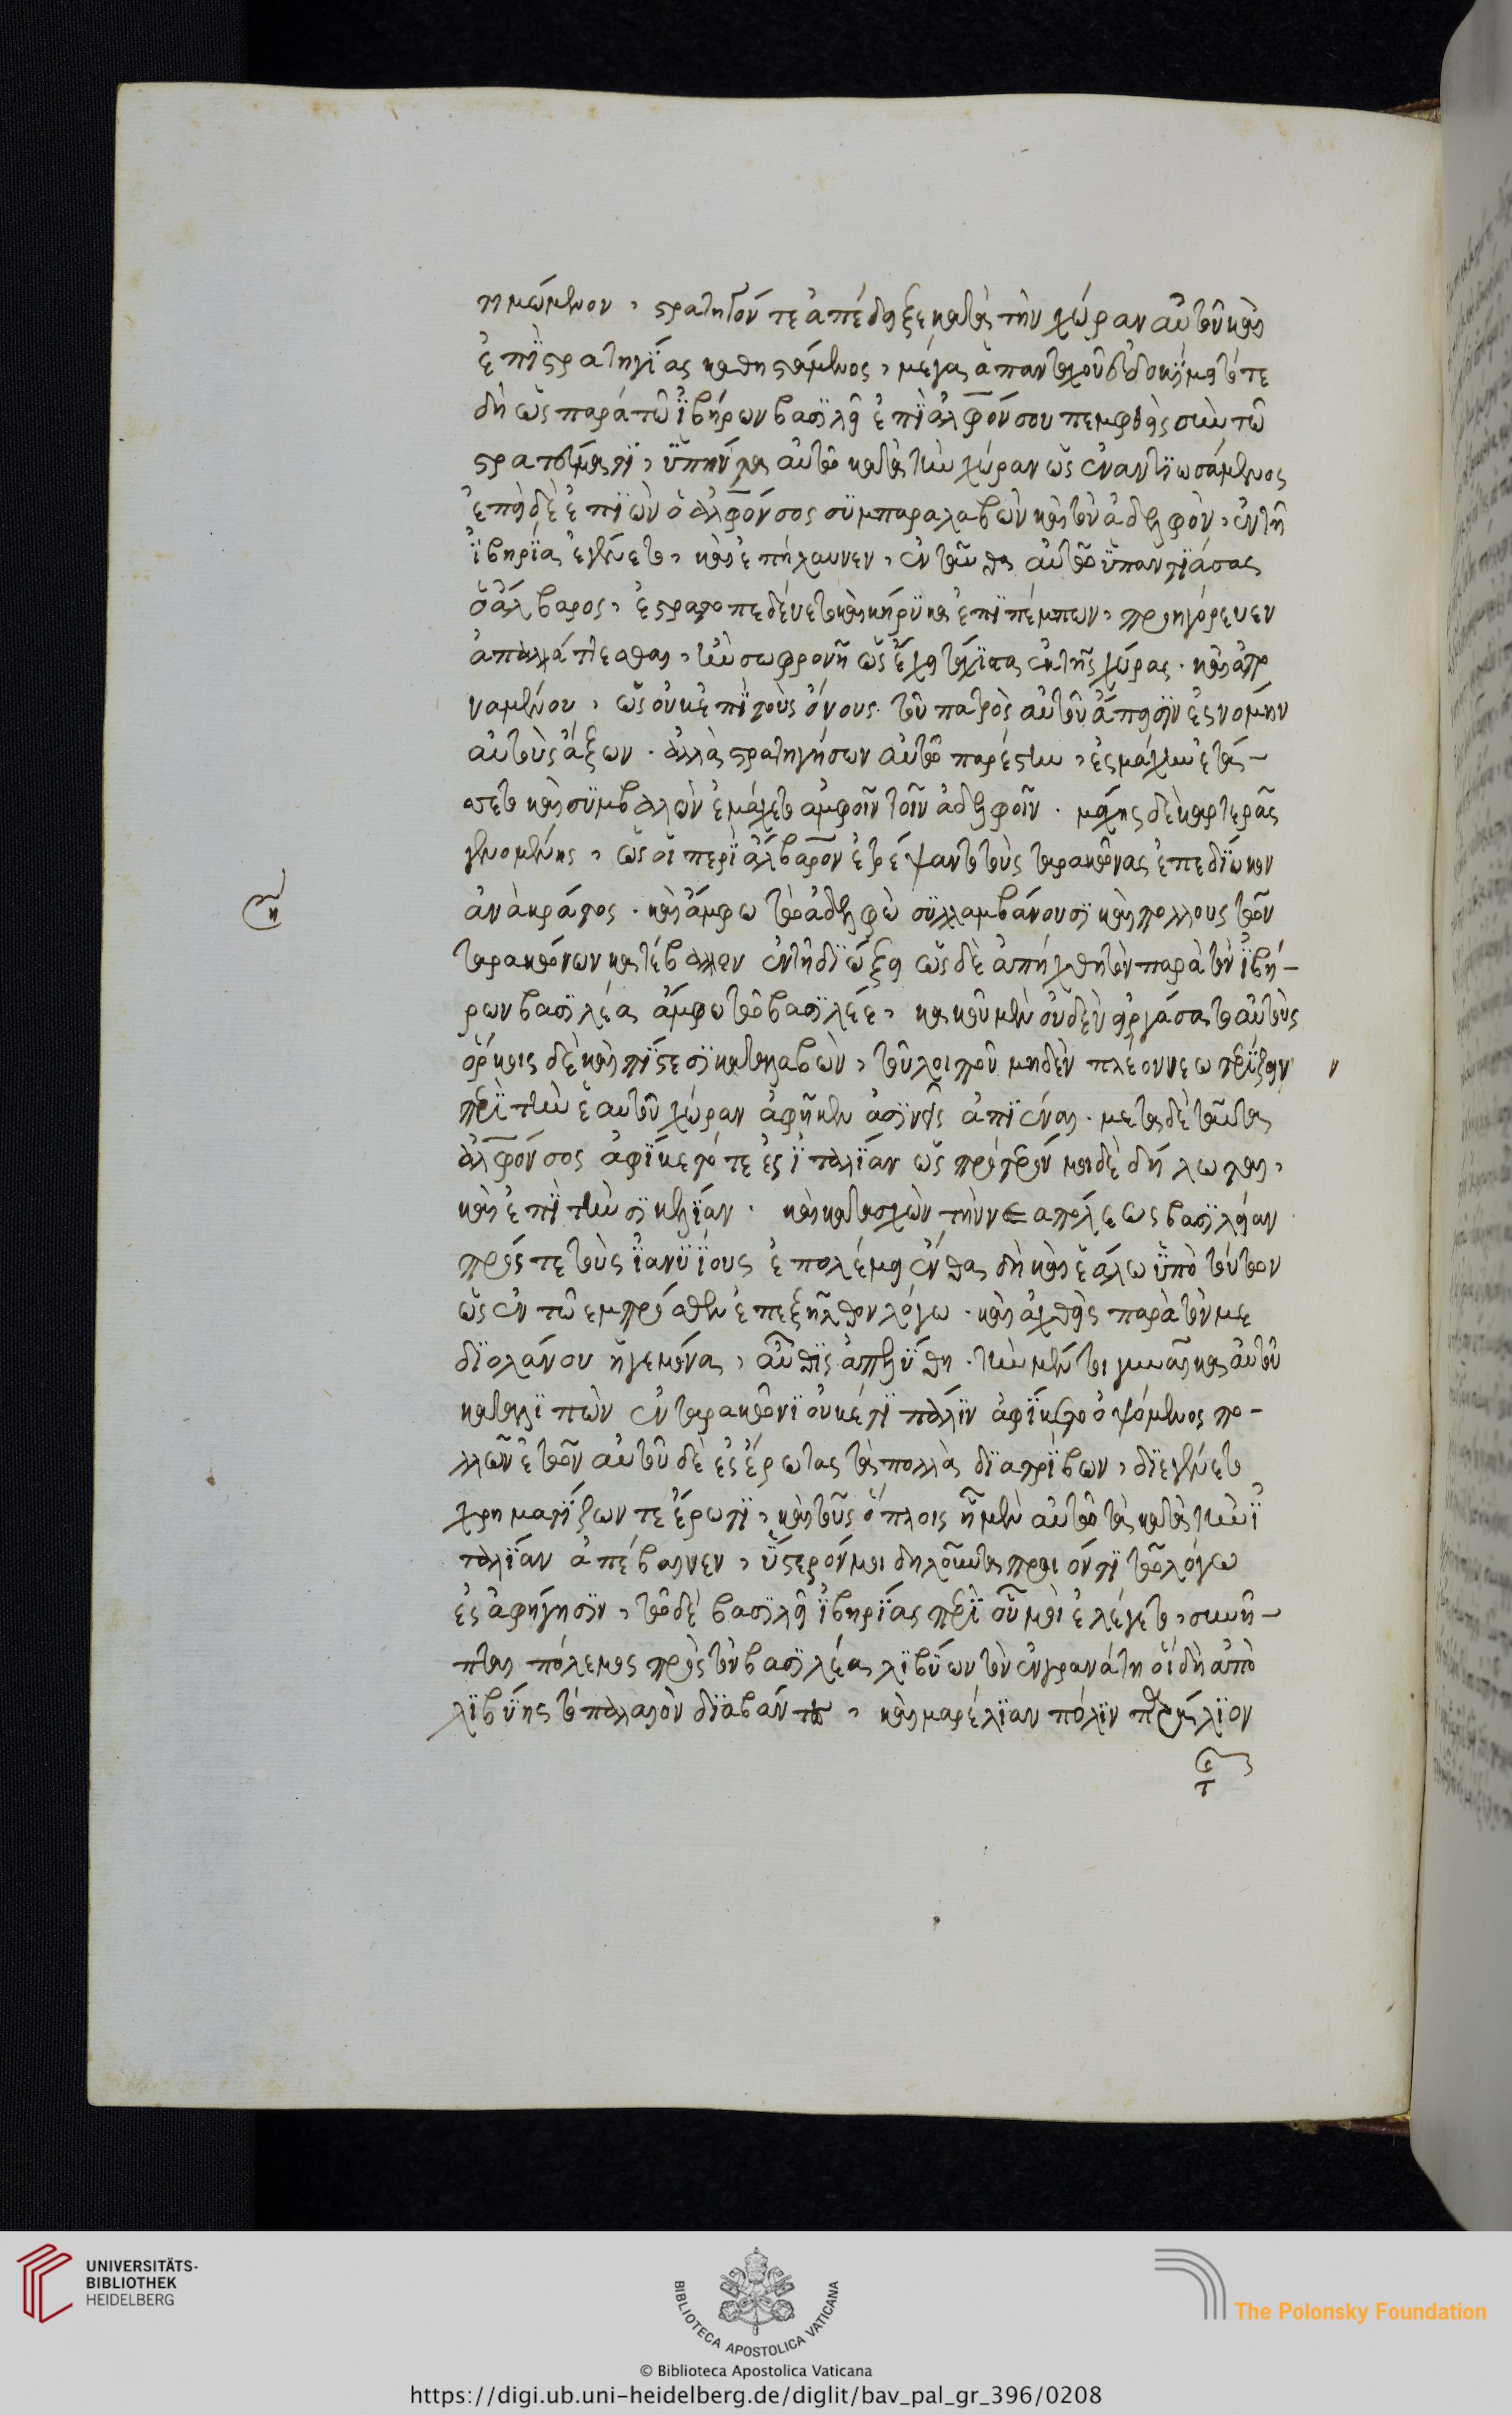 τιμώμενον, στρατηγόν τε ἀπέδειξε κατὰ τὴν χώραν αὐτοῦ καὶ
ἐπὶ στρατηγίας καθιστάμενος, μέγας ἁπανταχοῦ εὐδοκίμει τότε
δὴ ὡς παρὰ τῶ ἰβήρων βασιλεῖ ἐπὶ ἀλφόνσου πεμφθεὶς σὺν τῶ
στρατεύματι, ὑπήντα αὐτῶ κατὰ τὴν χώραν ὡς ἐναντιωσάμενος
ἐπεὶ δὲ ἐπιὼν ὁ ἀλφόνσος συμπαραλαβὼν καὶ τὸν ἀδελφὸν, ἐν τῆ
ἰβηρία ἐγένετο, καὶ ἐπήλαυνεν, ἐνταῦθα αὐτῶ ὑπαντιάσας
ὁ ἀλβαρος, ἐστρατοπεδεύετο καὶ κήρυκα ἐπιπέμπων, προηγόρευεν
ἀπαλλάττεσθαι, ἢν σωφρονῆ ὡς ἔχει τάχιστα ἐκ τῆς χώρας. καὶ
ναμένου, ὡς οὐκ ἐπὶ τοὺς ὄνους τοῦ πατρὸς αὐτοῦ ἄπεισιν ἐς νομὴν
αὐτοὺς ἄξων. ἀλλὰ στρατηγήσων αὐτῶ παρέστιν, ἐς μάχην ἐτά-
σετο καὶ συμβαλὼν ἐμάχετο ἀμφοῖν τοῖν ἀδελφοῖν. μάχης δὲ καρτερᾶς
γενομένης, ὡς οἱ περὶ ἀλβαρον ἐτρέψαντο τοὺς ταρακῶνας ἐπεδίωκον
ἀνὰ κράτος. καὶ ἄμφω τὼ ἀδελφὼ συλλαμβάνουσι καὶ πολλους τῶν
ταρακώνων κατέβαλλον ἐν τῆ διώξει ὡς δὲ ἀπήχθητον παρὰ τὸν ἰβή-
ρων βασιλέα ἄμφω τὼ βασιλέε, κακοῦ μὲν οὐδὲν εἰργάσατο αὐτοὺς
ὅρκοις δὲ καὶ πίστεσι καταλαβὼν, τοῦ λοιποῦ μηδὲν πλέον νεωτερίζειν
περὶ τὴν ἑαυτοῦ χώραν ἀφῆκεν ἀσινεῖς ἀπιέναι. μετὰ δὲ ταῦτα
ἀλφόνσος ἀφίκετό τε ἐς ἰταλίαν ὡς πρότερόν μοι δὲ δήλωται,
καὶ ἐπὶ τὴν σικελίαν. καὶ κατασχὼν τὴν νεαπόλεως βασιλείαν
πρός τε τοὺς ἰανυίους ἐπολέμει ἔνθα δὴ καὶ ἑάλω ὑπὸ τούτον
ὡς ἐν τῶ εμπρόσθεν ἐπεξῆλθον λόγω. καὶ ἀχθεὶς παρὰ τὸν με
διολάνου ἡγεμόνα, αὖθις ἀπελύθη. τὴν μέν τοι γυναῖκα αὐτοῦ
καταλιπὼν ἐν ταρακῶνι οὐκέτι πάλιν ἀφίκετο ὀψόμενος πο-
λλῶν ἐτῶν αὐτοῦ δὲ ἐς ἔρωτας τὰ πολλὰ διατρίβων, διεγένετο
χρηματίζων τε ἔρωτι, καὶ τοῖς ὅπλοις ἧ μὲν αὐτῶ τὰ κατὰ τὴν ἰ
ταλίαν ἀπέβαινεν, ὕστερόν μοι δηλοῦται προιόντι τῶ λόγω
ἐς ἀφήγησιν, τῶ δὲ βασιλεῖ ἰβηρίας περὶ οὗ μοι ἐλέγετο, συνῆ-
πται πόλεμος πρὸς τὸν βασιλέα λιβύων τὸν ἐν γρανάτη οἱ δὴ ἀπὸ
λιβύης τὸ παλαιὸν διαβάντες, καὶ μαρέλιαν πόλιν παράλιον